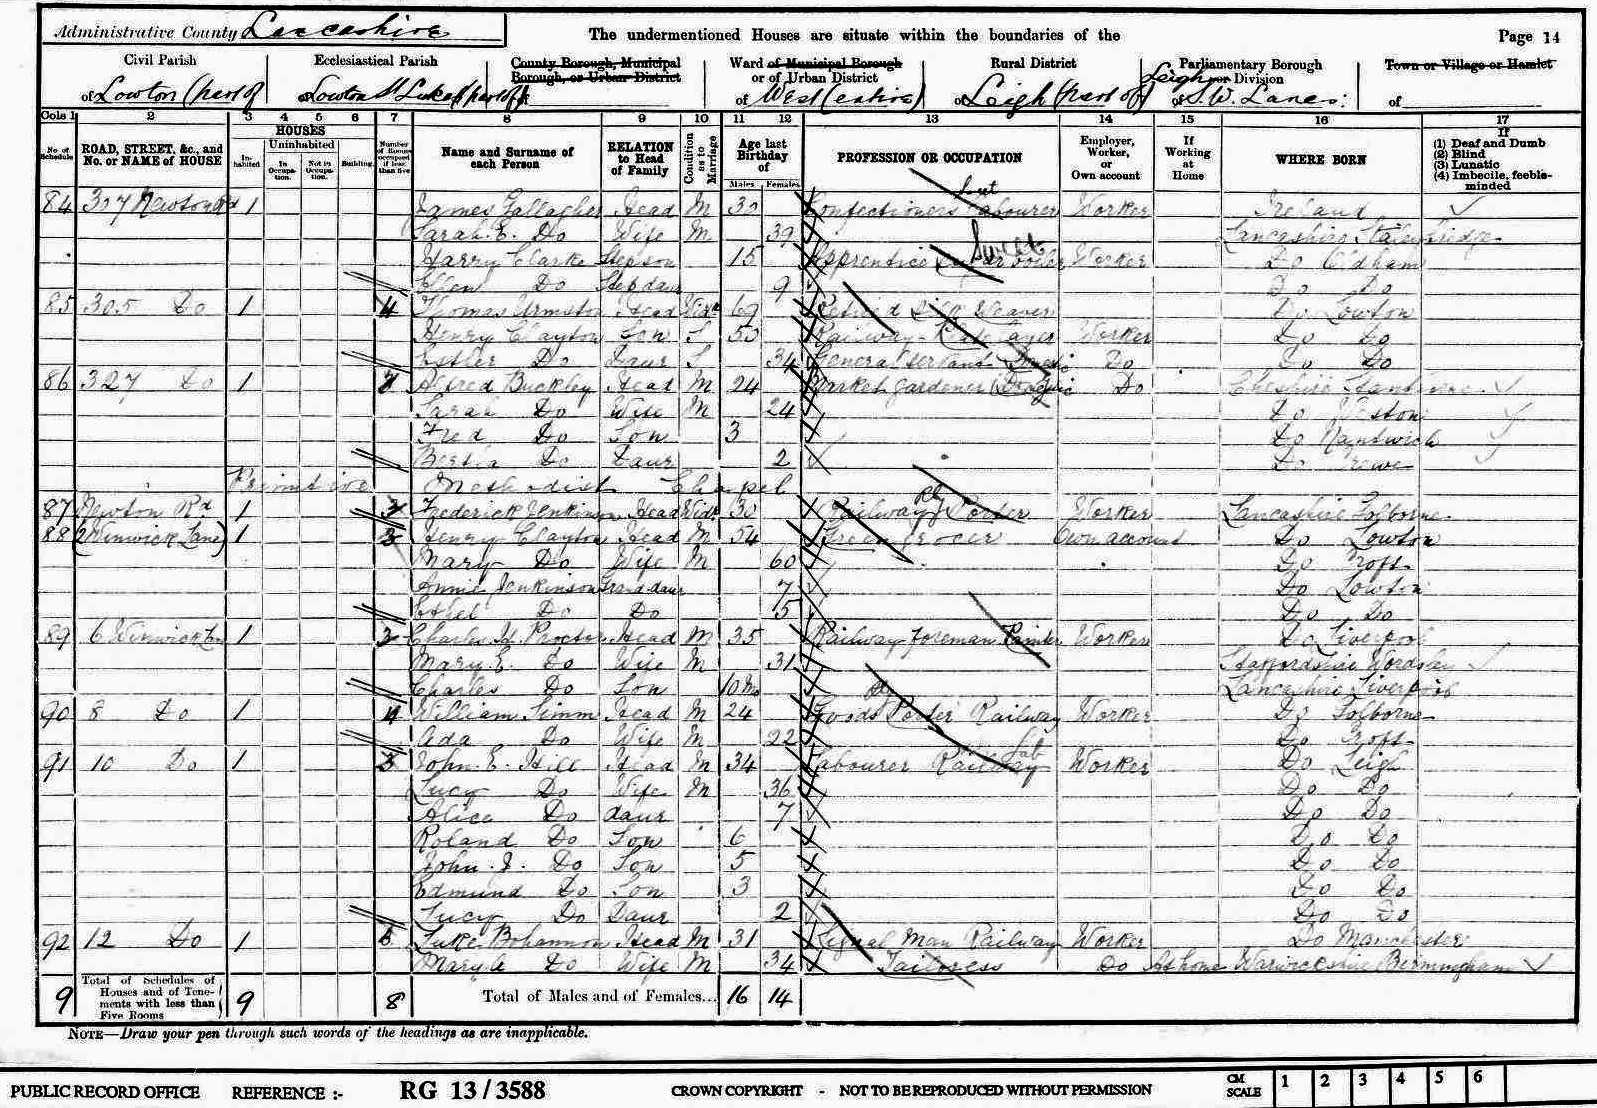 Administrative County Lancashire
The undermentioned Houses are situate within the boundaries of the
Page 14
Civil Parish
of Lowton (part of
Ecclesiastical Parish
of Lowton St Lukes (part of)
County Borough, Municipal
Borough, or Urban District
of
Ward of Municipal Borough
or of Urban District
of West (entire)
Rural District
of Leigh (part of)
Parliamentary Borough
Leigh or Division
of S.W. Lancs:
Town or Village or Hamlet
of
Cols 1 2 3 4 5 6 7 8 9 10 11 12 13 14 15 16 17
No. of Schedule
ROAD, STREET, &c., and
No. or NAME of HOUSE
HOUSES
In-habited
Uninhabited
In Occupa-tion.
Not in Occupa-tion.
Building.
Number of Rooms occupied if less than five
Name and Surname of
each Person
RELATION
to Head
of Family
Condition as to Marriage
Age last
Birthday
of
Males Females
PROFESSION OR OCCUPATION
Employer,
Worker,
or
Own account
If
Working
at
Home
WHERE BORN
If
(1) Deaf and Dumb
(2) Blind
(3) Lunatic
(4) Imbecile, feeble-
minded
84 307 Newton Rd 1 James Gallagher Head M 30 Confectioners Labourer Worker Ireland
Sarah. E. Do Wife M 39 Lancashire Stalybridge
Harry Clarke Stepson 15 Apprentice Sweet Worker Do Oldham
Ellen Do Stepdaur 9 Do Do
85 305 Do 1 4 Thomas Urmston Head Widr 69 Retired Silk Weaver Do Lowton
Henry Clayton Son S 50 Railway Plate Layer Worker Do Do
Esther Do Daur S 34 General Servant Domestic Do Do Do
86 327 Do 1 Alfred Buckley Head M 24 Market Gardener Domestic Do Cheshire
Sarah Do Wife M 24 Do Weston
Fred Do Son 3 Do Nantwich
Bertha Do Daur 2 Do Crewe
Primitive Methodist Chapel
87 Newton Rd 1 Frederick Jenkinson Head Widr 30 Railway Porter Worker Lancashire Golborne
88 (2 Winwick Lane) 1 3 Henry Clayton Head M 54 Green Grocer Own account Do Lowton
Mary Do Wife M 60 Do Croft
Annie Jenkinson Grand daur 7 Do Lowton
Ethel Do Do 5 Do Do
89 6 Winwick Lan 1 3 Charles H. Proctor Head M 35 Railway Foreman Painter Worker Do Liverpool
Mary. E. Do Wife M 31 Staffordshire Wordsley
Charles Do Son 10 Mo Lancashire Liverpool
90 8 Do 1 4 William Simm Head M 24 Goods Porter Railway Worker Do Golborne
Ada Do Wife M 22 Do Croft
91 10 Do 1 3 John. E. Hill Head M 34 Labourer Railway Worker Do Leigh
Lucy Do Wife M 36 Do Do
Alice Do daur 7 Do Do
Roland Do Son 6 Do Do
John. J. Do Son 5 Do Do
Edmund Do Son 3 Do Do
Lucy Do Daur 2 Do Do
92 12 Do 1 Luke Bohannon Head M 31 Signal Man Railway Worker Do Manchester
Mary Do Wife M 34 Tailoress Do At home Warwickshire Birmingham
9 Total of Schedules of
Houses and of Tene-
ments with less than
Five Rooms 9 8 Total of Males and of Females... 16 14
NOTE—Draw your pen through such words of the headings as are inapplicable.
PUBLIC RECORD OFFICE REFERENCE :- RG 13/3588 CROWN COPYRIGHT - NOT TO BE REPRODUCED WITHOUT PERMISSION
CM
SCALE 1 2 3 4 5 6